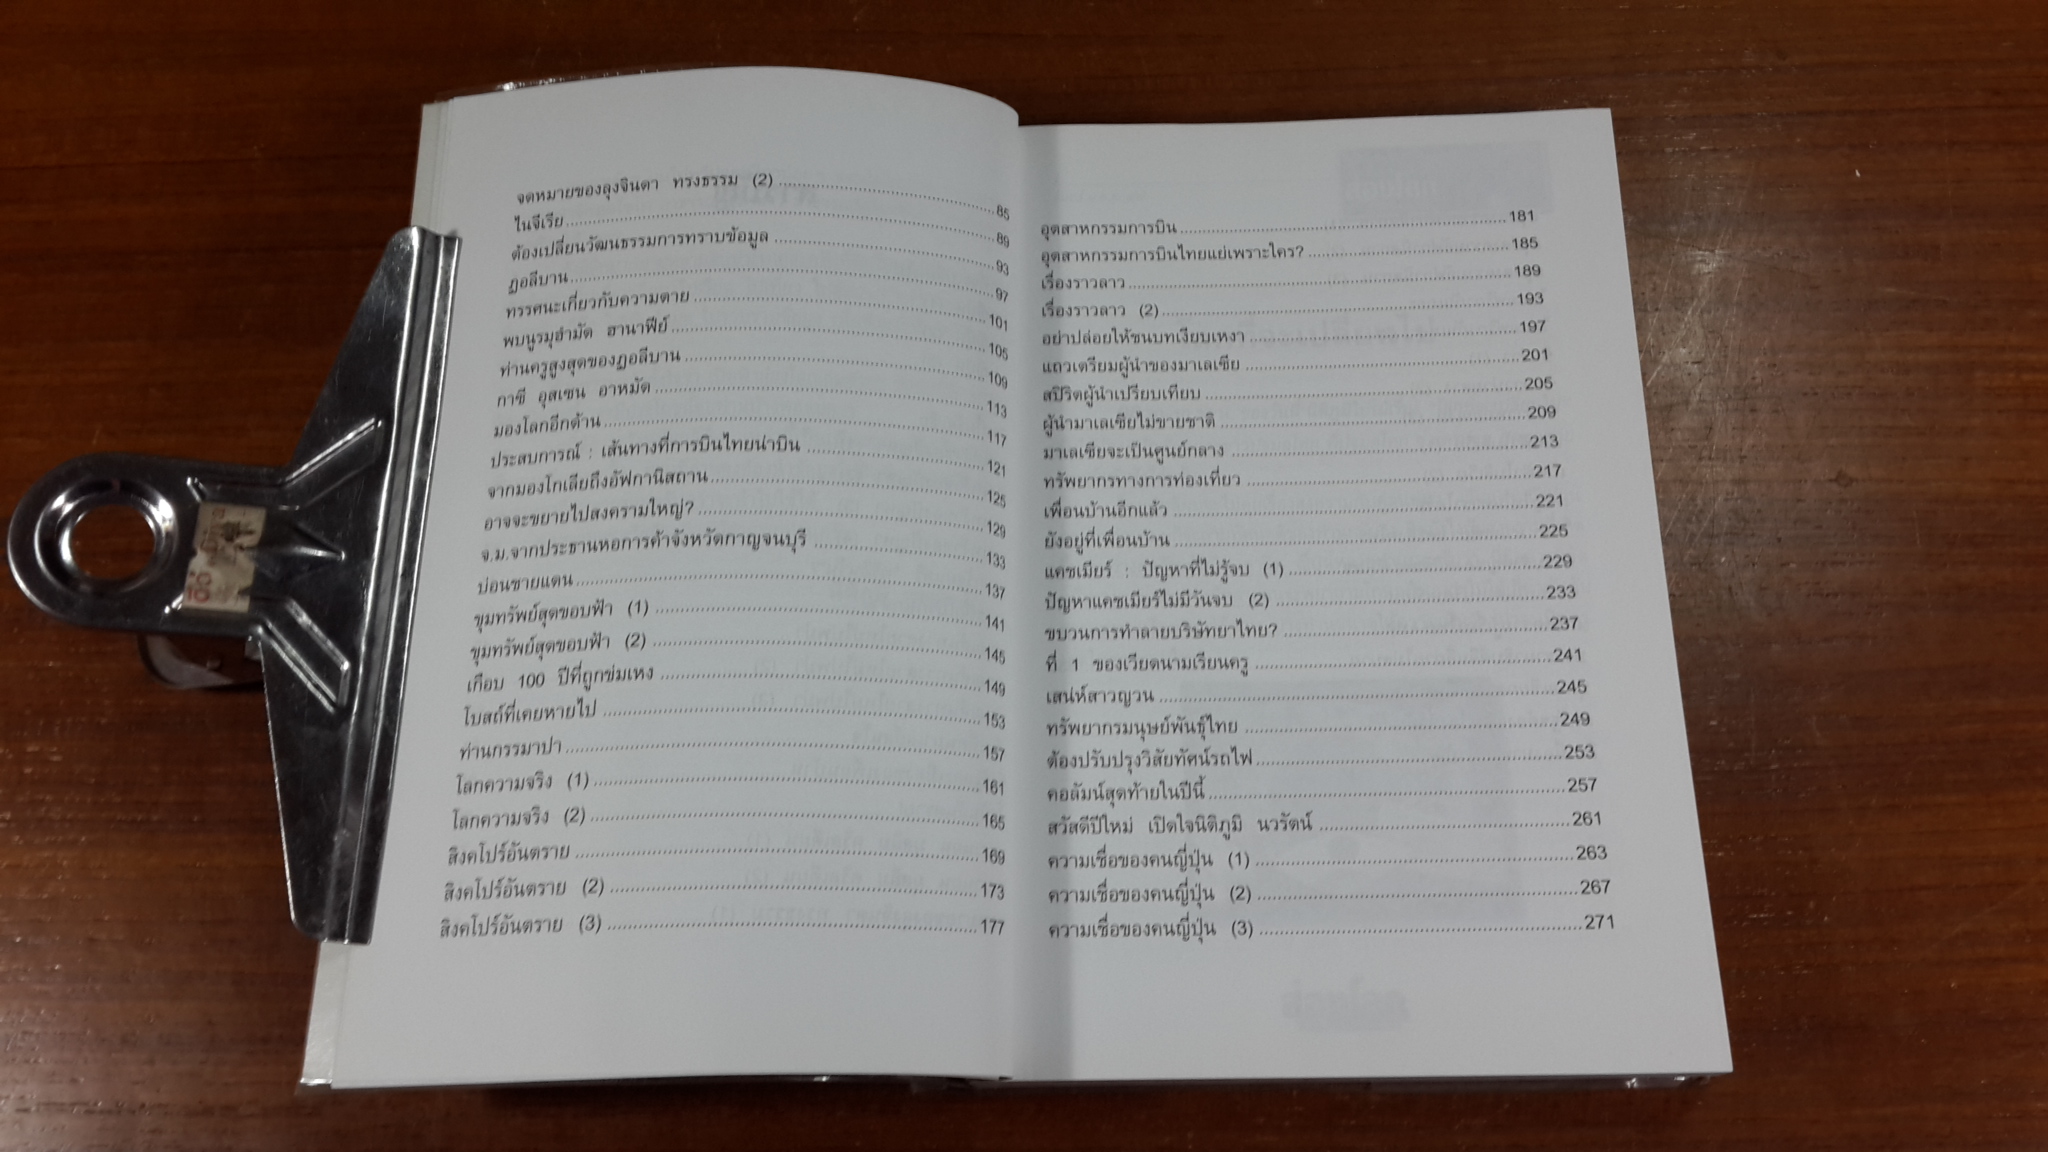 จดหมายของลุงจินดา ทรงธรรม (2) ........ 85
ไนจีเรีย ........ 89
ต้องเปลี่ยนวัฒนธรรมการทราบข้อมูล ........ 93
ฏอลีบาน ........ 97
ทรรศนะเกี่ยวกับความตาย ........ 101
พบนูรมุฮำมัด ฮานาฟีย์ ........ 105
ท่านครูสูงสุดของฏอลีบาน ........ 109
กาซี อุสเซน อาหมัด ........ 113
มองโลกอีกด้าน ........ 117
ประสบการณ์ : เส้นทางที่การบินไทยน่าบิน ........ 121
จากมองโกเลียถึงอัฟกานิสถาน ........ 125
อาจจะขยายไปสงครามใหญ่? ........ 129
จ.ม.จากประธานหอการค้าจังหวัดกาญจนบุรี ........ 133
บ่อนชายแดน ........ 137
ขุมทรัพย์สุดขอบฟ้า (1) ........ 141
ขุมทรัพย์สุดขอบฟ้า (2) ........ 145
เกือบ 100 ปีที่ถูกข่มเหง ........ 149
โบสถ์ที่เคยหายไป ........ 153
ท่านกรรมาปา ........ 157
โลกความจริง (1) ........ 161
โลกความจริง (2) ........ 165
สิงคโปร์อันตราย ........ 169
สิงคโปร์อันตราย (2) ........ 173
สิงคโปร์อันตราย (3) ........ 177
อุตสาหกรรมการบิน ........ 181
อุตสาหกรรมการบินไทยแย่เพราะใคร? ........ 185
เรื่องราวลาว ........ 189
เรื่องราวลาว (2) ........ 193
อย่าปล่อยให้ชนบทเงียบเหงา ........ 197
แถวเตรียมผู้นำของมาเลเซีย ........ 201
สปิริตผู้นำเปรียบเทียบ ........ 205
ผู้นำมาเลเซียไม่ขายชาติ ........ 209
มาเลเซียจะเป็นศูนย์กลาง ........ 213
ทรัพยากรทางการท่องเที่ยว ........ 217
เพื่อนบ้านอีกแล้ว ........ 221
ยังอยู่ที่เพื่อนบ้าน ........ 225
แคชเมียร์ : ปัญหาที่ไม่รู้จบ (1) ........ 229
ปัญหาแคชเมียร์ไม่มีวันจบ (2) ........ 233
ขบวนการทำลายบริษัทยาไทย? ........ 237
ที่ 1 ของเวียดนามเรียนครู ........ 241
เสน่ห์สาวญวน ........ 245
ทรัพยากรมนุษย์พันธุ์ไทย ........ 249
ต้องปรับปรุงวิสัยทัศน์รถไฟ ........ 253
คอลัมน์สุดท้ายในปีนี้ ........ 257
สวัสดีปีใหม่ เปิดใจนิติภูมิ นวรัตน์ ........ 261
ความเชื่อของคนญี่ปุ่น (1) ........ 263
ความเชื่อของคนญี่ปุ่น (2) ........ 267
ความเชื่อของคนญี่ปุ่น (3) ........ 271